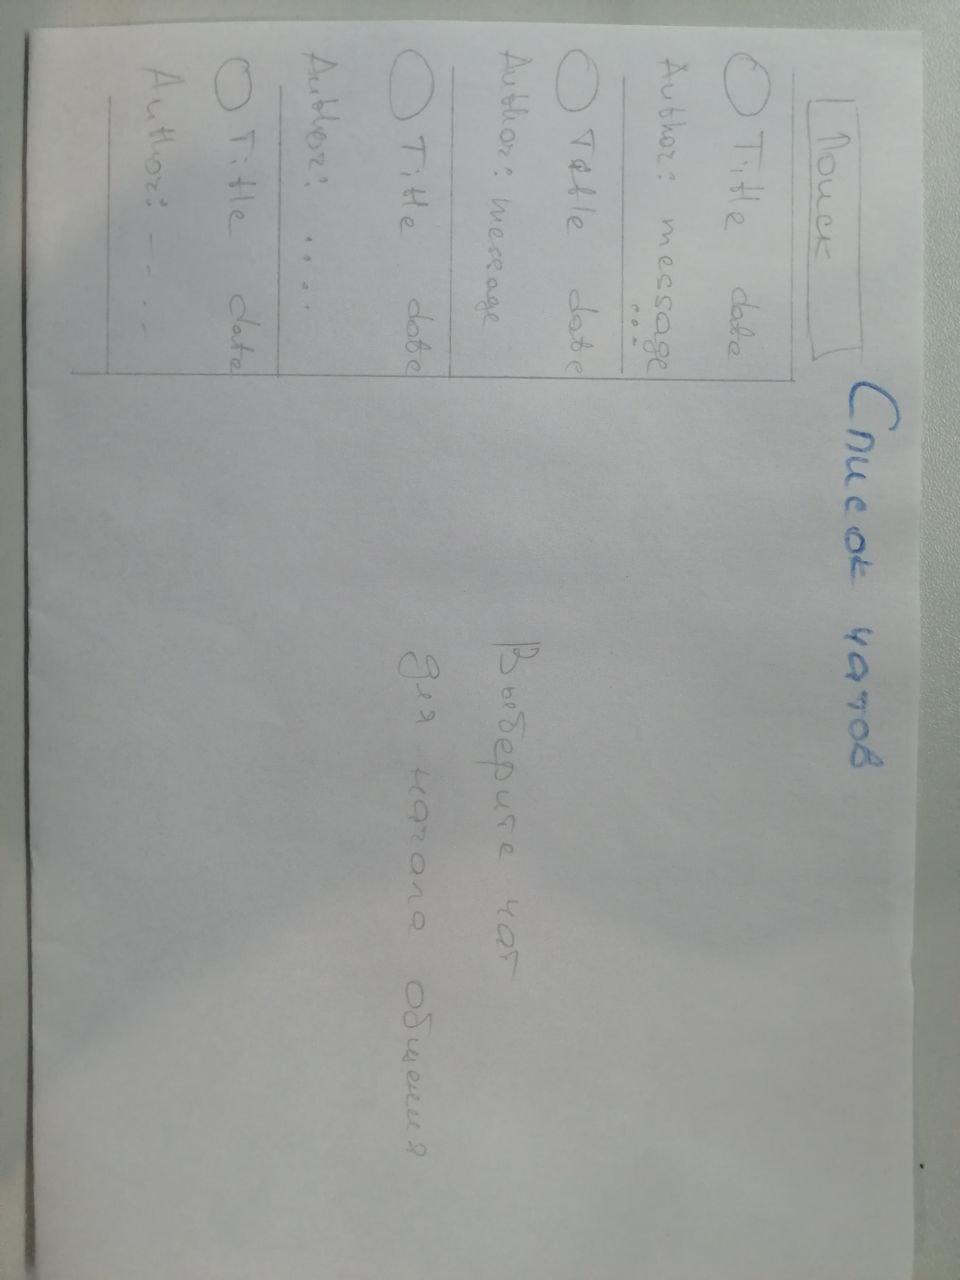 Список чатов
Поиск
Title date
Author: message
...
Title date
Author: message
Title date
Author: ....
Title date
Author: – – . .
Выберите чат
для начала общения